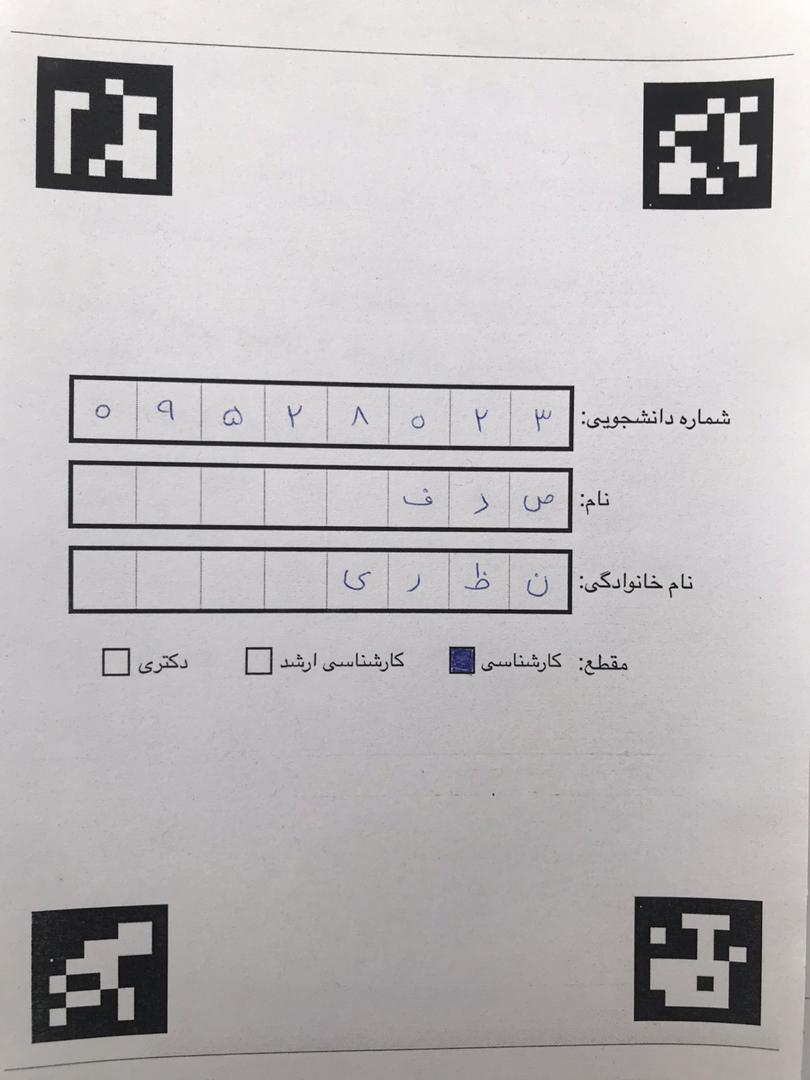 شماره دانشجویی: ۰ ۹ ۵ ۲ ۸ ۰ ۲ ۳
نام: ص د ف
نام خانوادگی: ن ظ ر ی
مقطع: کارشناسی کارشناسی ارشد دکتری